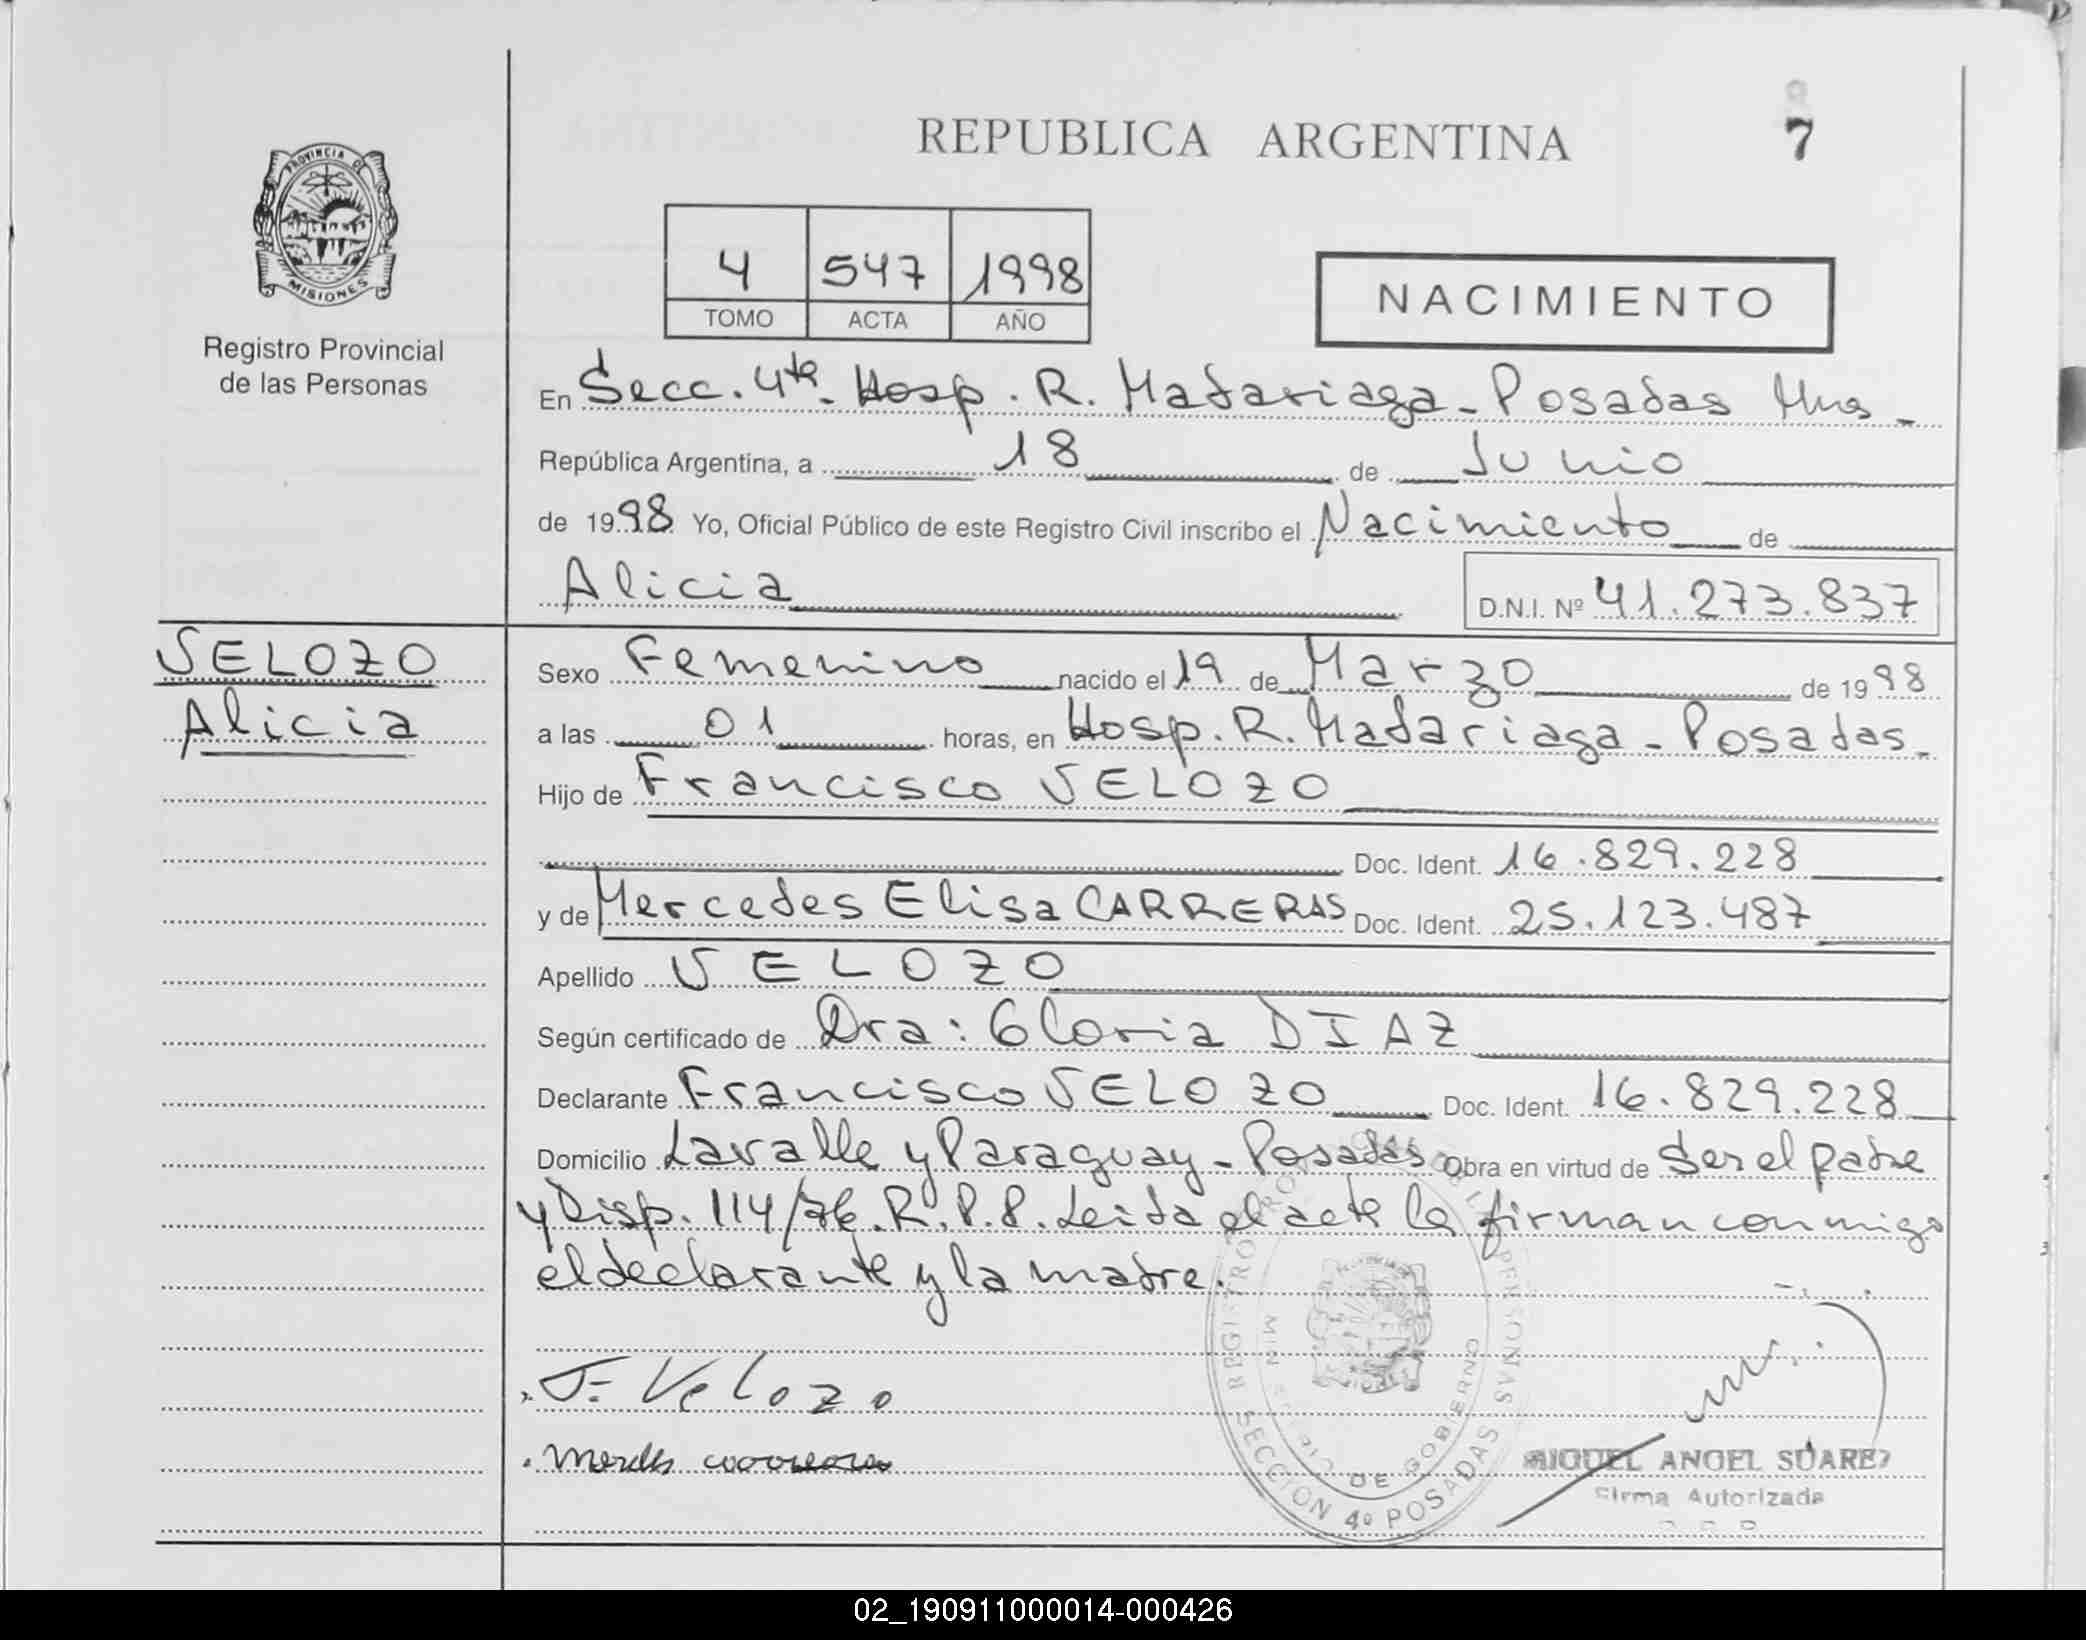 REPUBLICA ARGENTINA
7
PROVINCIA DE
MISIONES
Registro Provincial
de las Personas
4 547 1998
TOMO ACTA AÑO
NACIMIENTO
En Secc. 4ta. Hosp. R. Madariaga - Posadas Mnes -
República Argentina, a 18 de Junio
de 1998 Yo, Oficial Público de este Registro Civil inscribo el Nacimiento de
Alicia D.N.I. Nº 41.273.837
VELOZO
Alicia
Sexo Femenino nacido el 19 de Marzo de 1998
a las 01 horas, en Hosp. R. Madariaga - Posadas -
Hijo de Francisco VELOZO
Doc. Ident. 16.829.228
y de Mercedes Elisa CARRERAS Doc. Ident. 25.123.487
Apellido VELOZO
Según certificado de Dra: Gloria DIAZ
Declarante Francisco VELOZO Doc. Ident. 16.829.228
Domicilio Lavalle y Paraguay - Posadas Obra en virtud de Ser el padre
y Disp. 114/76. R.P.P. Leida el acta la firman conmigo
el declarante y la madre.
F. Velozo
REGISTRO PERSONAS
DE GOBIERNO
SECCION 4º POSADAS
MIGUEL ANGEL SUAREZ
Firma Autorizada
02_190911000014-000426